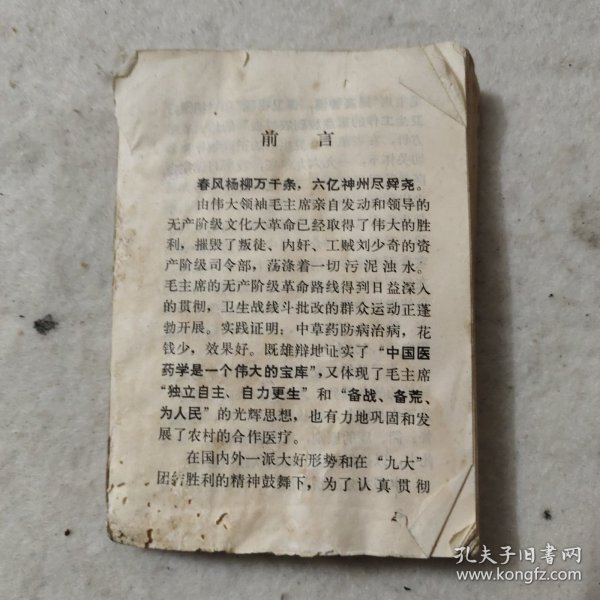 前言
春风杨柳万千条，六亿神州尽舜尧。
由伟大领袖毛主席亲自发动和领导的
无产阶级文化大革命已经取得了伟大的胜
利，摧毁了叛徒、内奸、工贼刘少奇的资
产阶级司令部，荡涤着一切污泥浊水。
毛主席的无产阶级革命路线得到日益深入
的贯彻，卫生战线斗批改的群众运动正蓬
勃开展。实践证明：中草药防病治病，花
钱少，效果好。既雄辩地证实了“中国医
药学是一个伟大的宝库”，又体现了毛主席
“独立自主、自力更生”和“备战、备荒、
为人民”的光辉思想，也有力地巩固和发
展了农村的合作医疗。
在国内外一派大好形势和在“九大”
团结胜利的精神鼓舞下，为了认真贯彻
孔夫子旧书网
www.kongfz.com